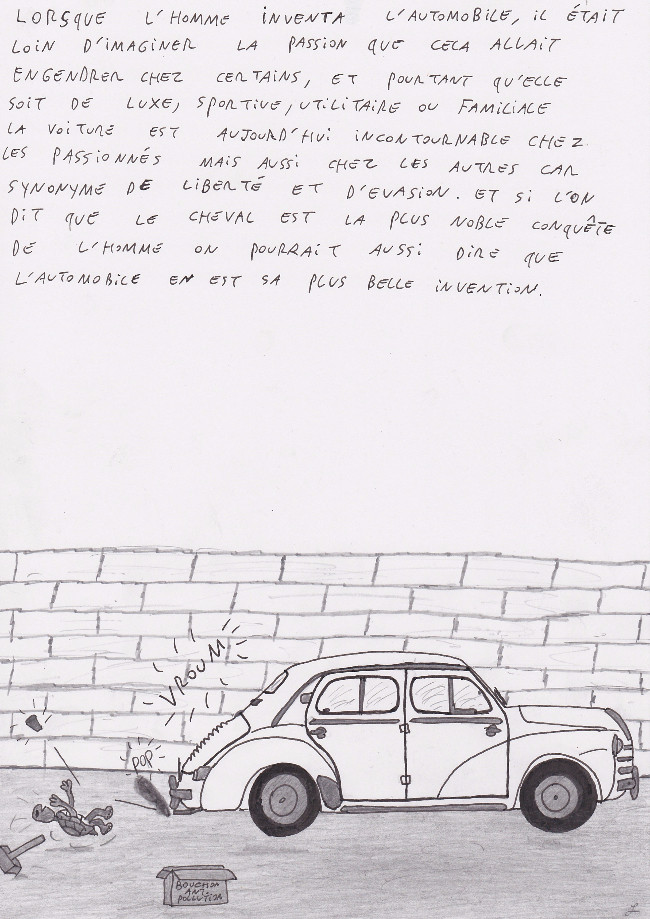 LORSQUE L'HOMME INVENTA L'AUTOMOBILE, IL ÉTAIT
LOIN D'IMAGINER LA PASSION QUE CELA ALLAIT
ENGENDRER CHEZ CERTAINS, ET POURTANT QU'ELLE
SOIT DE LUXE, SPORTIVE, UTILITAIRE OU FAMILIALE
LA VOITURE EST AUJOURD'HUI INCONTOURNABLE CHEZ
LES PASSIONNÉS MAIS AUSSI CHEZ LES AUTRES CAR
SYNONYME DE LIBERTÉ ET D'EVASION. ET SI L'ON
DIT QUE LE CHEVAL EST LA PLUS NOBLE CONQUÊTE
DE L'HOMME ON POURRAIT AUSSI DIRE QUE
L'AUTOMOBILE EN EST SA PLUS BELLE INVENTION.
VROUM
POP
BOUCHON
ANTI
POLLUTION